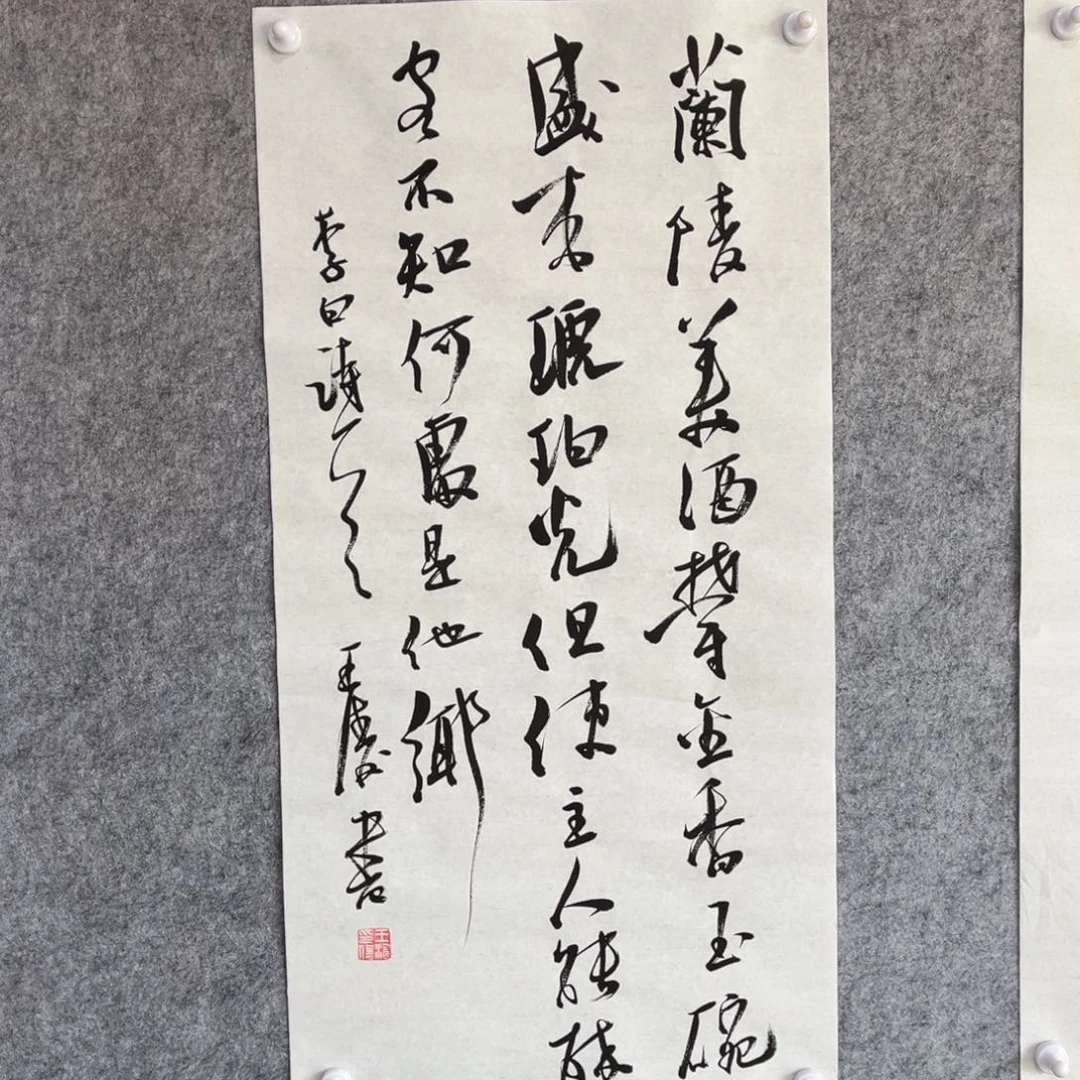 蘭陵美酒鬱金香玉碗
盛來琥珀光但使主人能醉
客不知何處是他鄉
李白詩一首 王慶書